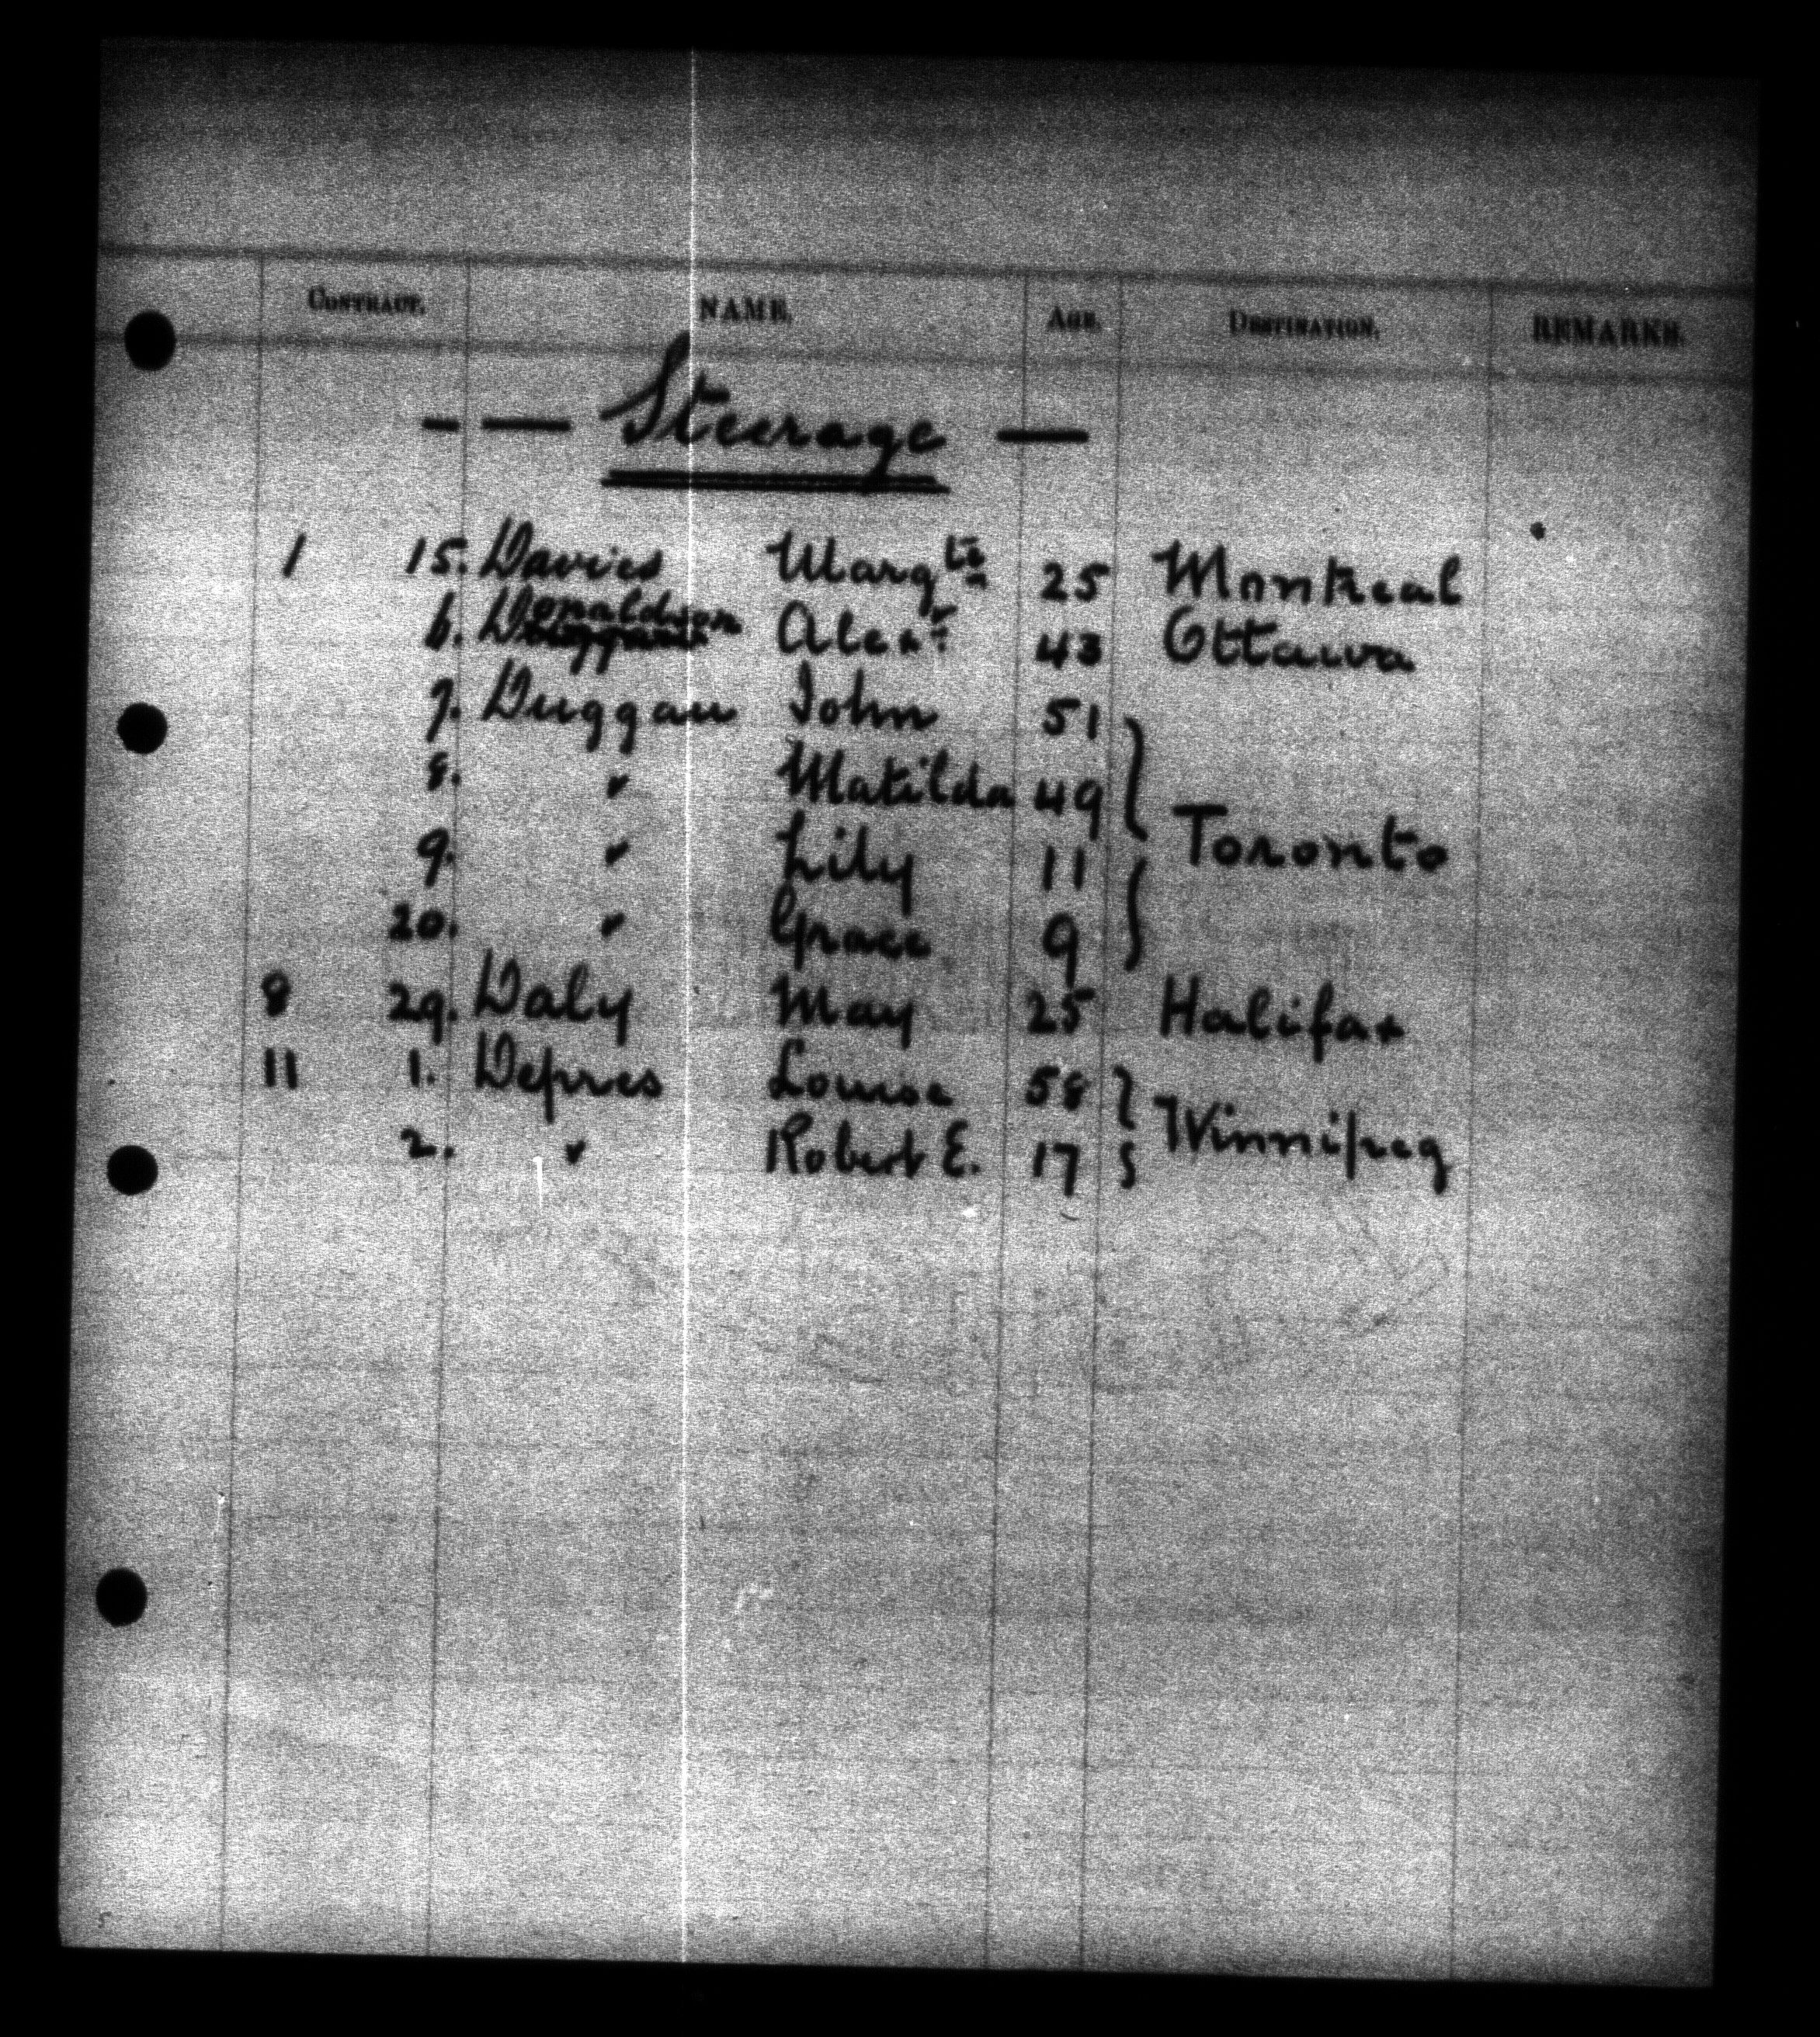 CONTRACT. NAME. AGE. DESTINATION. REMARKS.
— — Steerage —
1 15. Davies Margte 25 Montreal
6. Donaldson Alexr. 43 Ottawa
7. Duggan John 51
8. " Matilda 49
Toronto
9. " Lily 11
20. " Grace 9
8 29. Daly May 25 Halifax
11 1. Depres Louisa 58
Winnipeg
2. " Robert E. 17